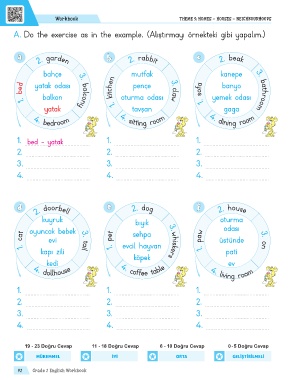 Workbook
THEME 5: HOMES - HOUSES - NEIGHBOURHOODS
A. Do the exercise as in the example. (Alıştırmayı örnekteki gibi yapalım.)
1. bed
2. garden
3. balcony
4. bedroom
bahçe
yatak odası
balkon
yatak
1. bed - yatak
2.
3.
4.
1. kitchen
2. rabbit
3. claw
4. sitting room
mutfak
pençe
oturma odası
tavşan
1.
2.
3.
4.
1. sofa
2. beak
3. bathroom
4. dining room
kanepe
banyo
yemek odası
gaga
1.
2.
3.
4.
1. cat
2. doorbell
3. tail
4. dollhouse
kuyruk
oyuncak bebek
evi
kapı zili
kedi
1.
2.
3.
4.
1. pet
2. dog
3. whiskers
4. coffee table
bıyık
sehpa
evcil hayvan
köpek
1.
2.
3.
4.
1. paw
2. house
3. on
4. living room
oturma
odası
üstünde
pati
ev
1.
2.
3.
4.
19 - 23 Doğru Cevap
11 - 18 Doğru Cevap
6 - 10 Doğru Cevap
0-5 Doğru Cevap
MÜKEMMEL
İYİ
ORTA
GELİŞTİRİLMELİ
92
Grade 2 English Workbook